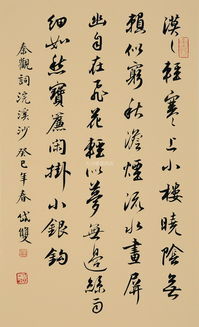 漠〻輕寒〻上小樓曉陰無
賴似窮秋澹煙流水畫屏
幽自在飛花輕似夢無邊絲雨
細如愁寶簾閑掛小銀鉤
秦觀詞浣溪沙癸巳年春